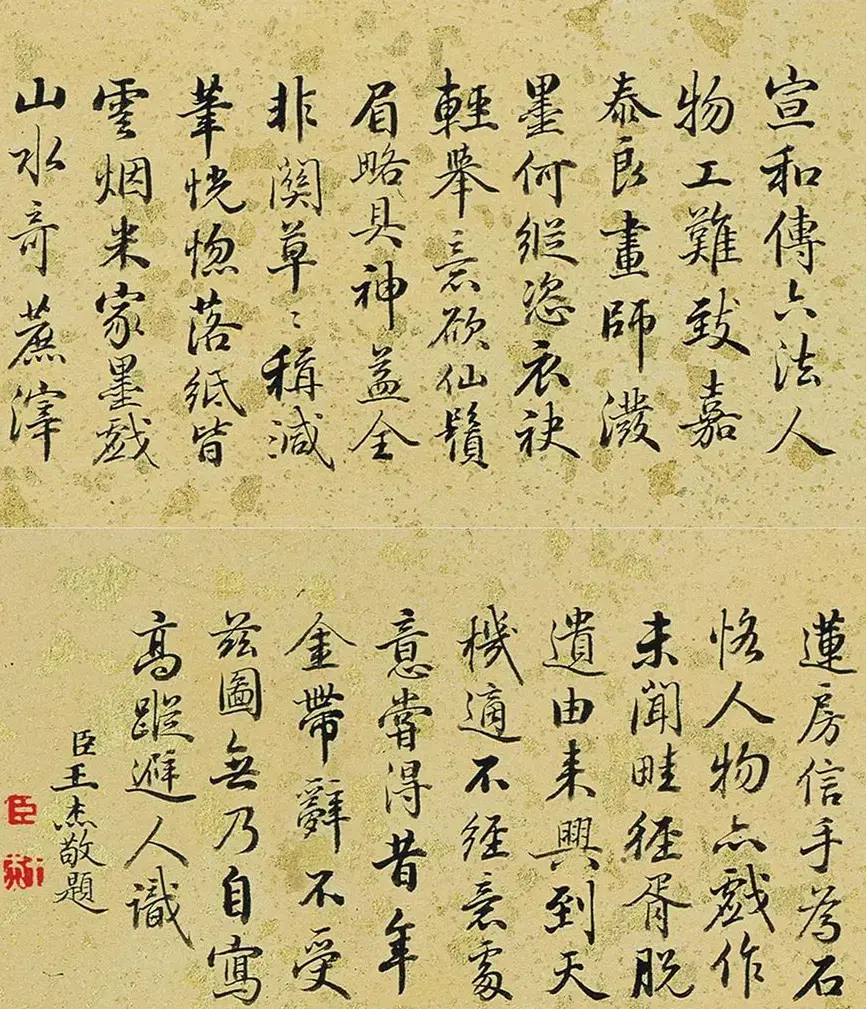 宣和傳六法人
物工難致嘉
泰良畫師潑
墨何縱恣衣袂
輕舉意欲仙鬚
眉略具神益全
非關草〻稱減
筆恍惚落紙皆
雲烟米家墨戲
山水奇蔗滓
蓮房信手為石
恪人物亦戲作
未聞畦徑胥脫
遺由来興到天
機適不經意處
意嘗得昔年
金帶辭不受
茲圖無乃自寫
高蹤遯人識
臣王杰敬題
臣